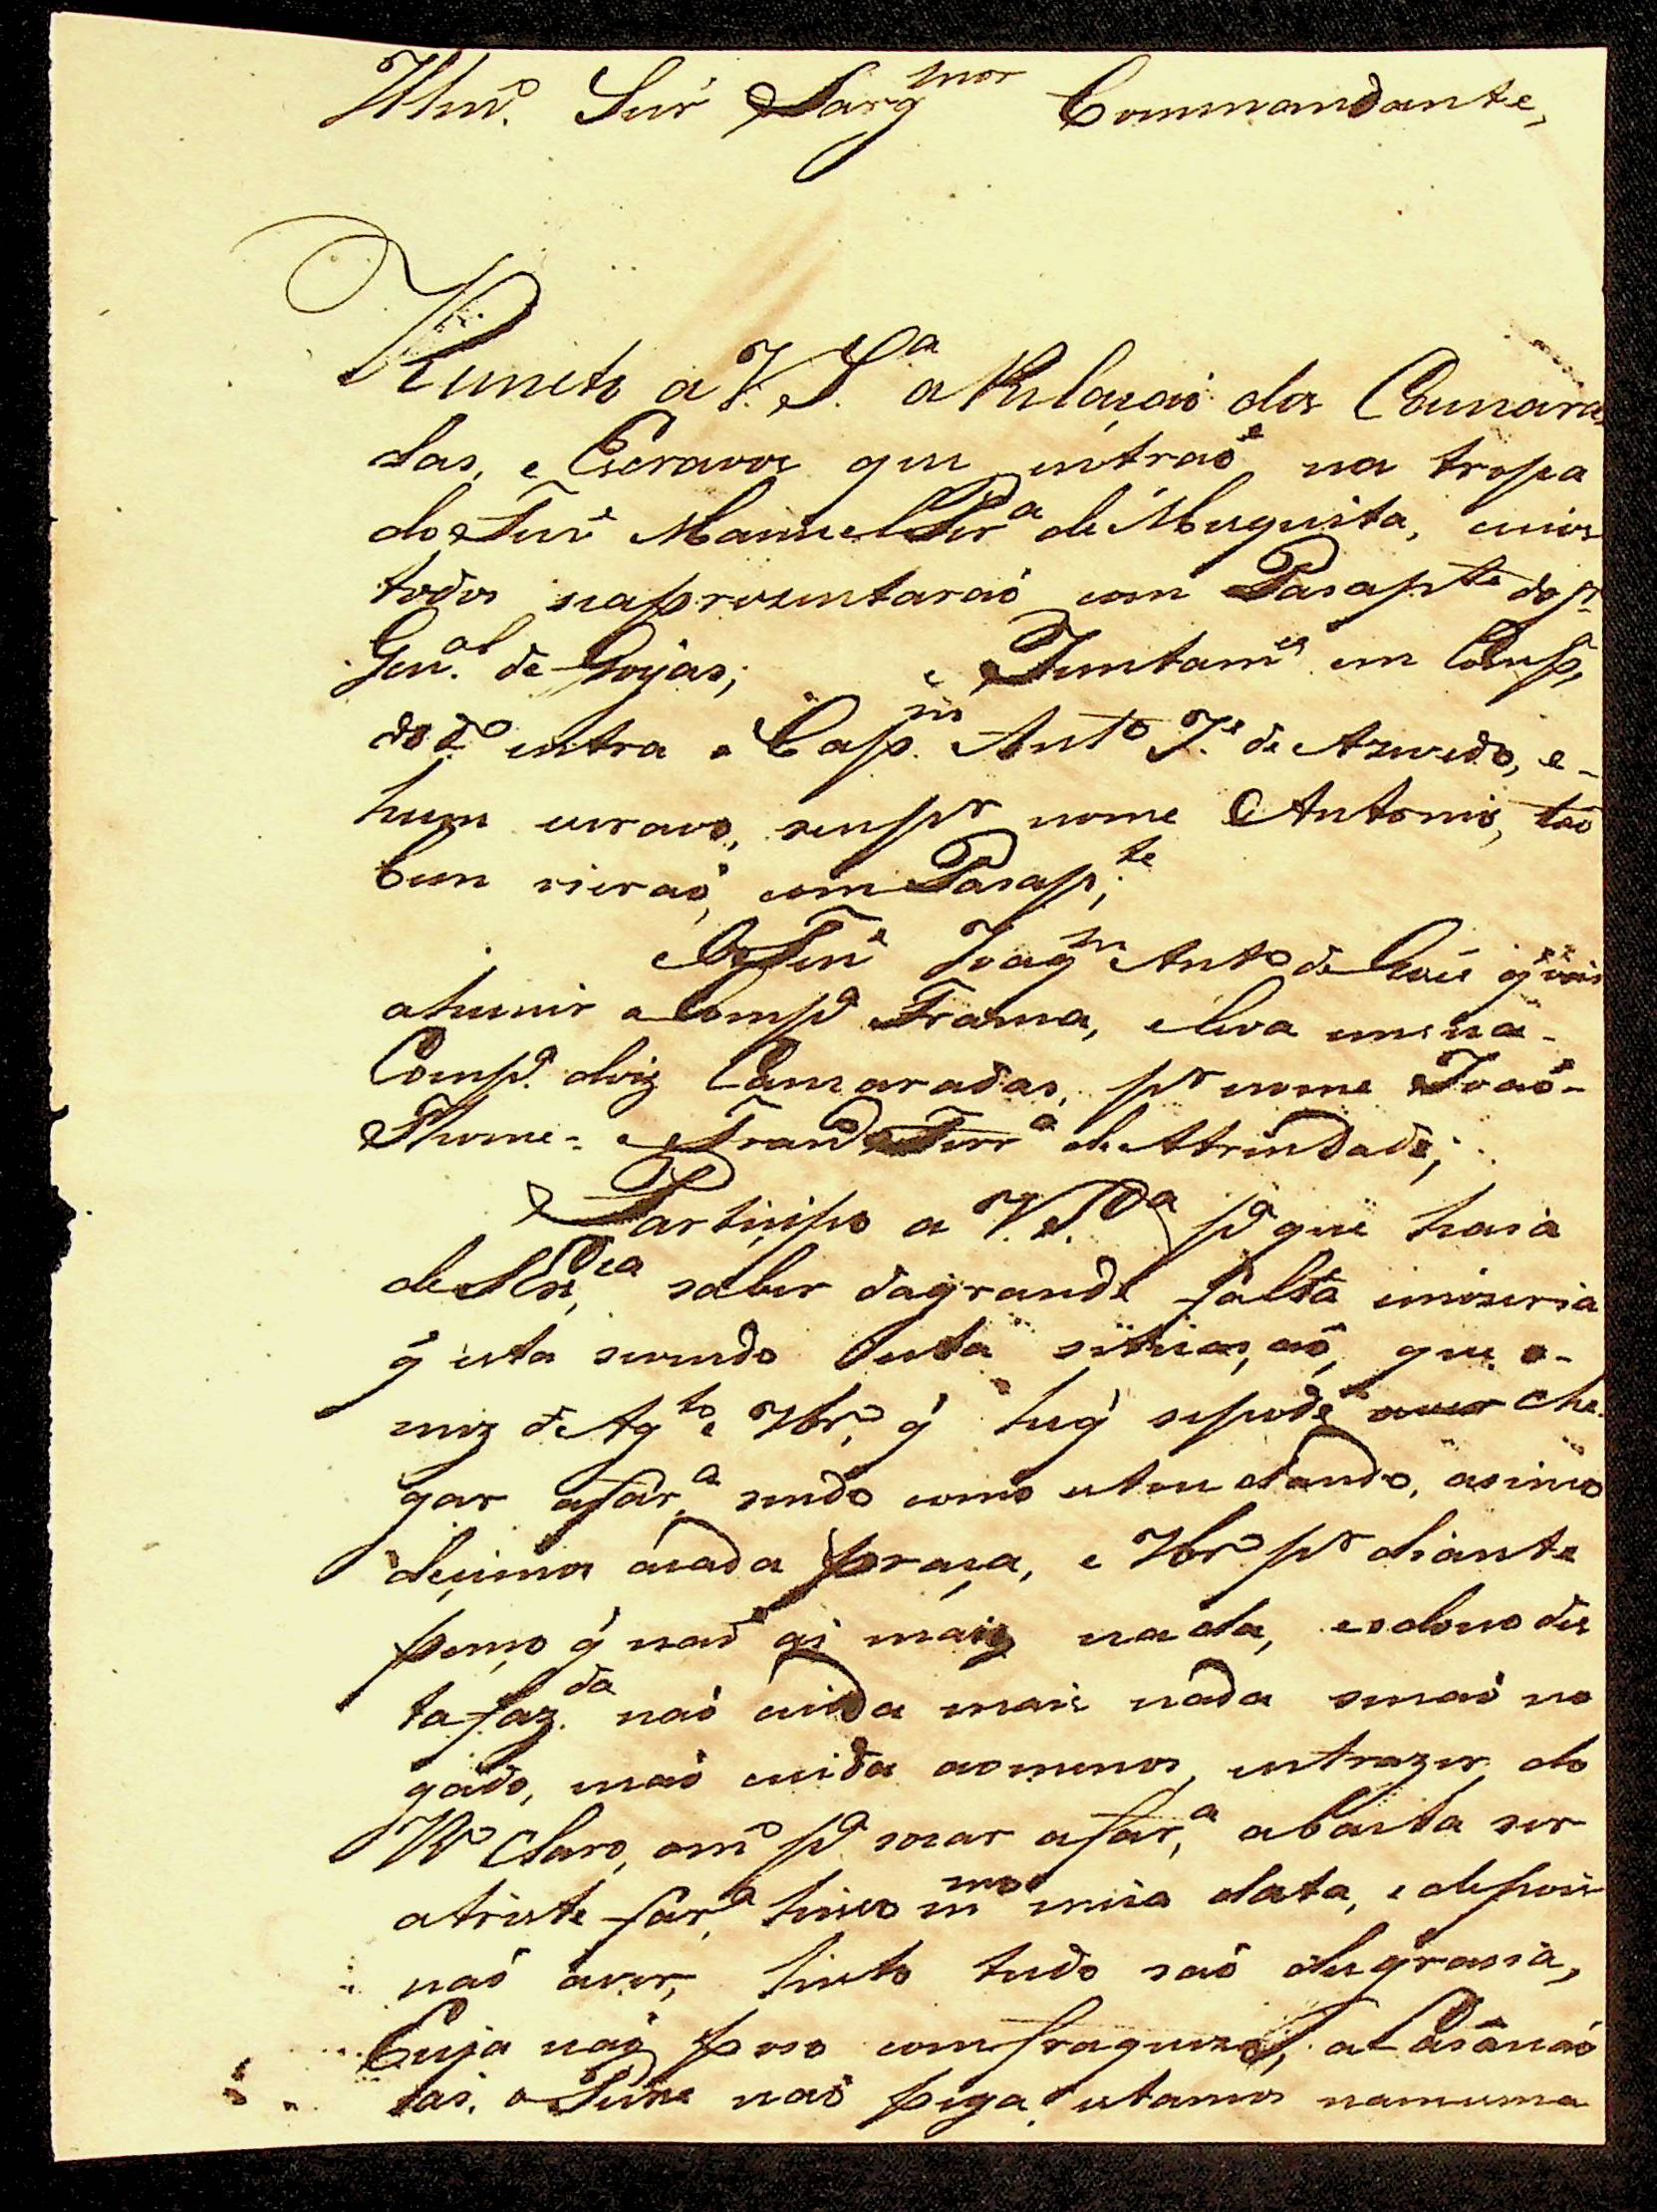 Illmo. Snr̃ Sargmor Commandante,
Remeto a V. Sa a Relação dos Camara
das, e Escravos que entraõ na tropa
do Tene Manuel Pera de Mesquita, cuios
todos seaprezentaraõ com Pasapte do
Genal. de Goyas; e Juntamte em Compa
do do entra o Capm. Anto Je. de Azevedo, e-
hum escravo, seu pr nome Antonio, tao
bem vieraõ, com Pasapte;
O Tene Joaqm Anto de q̃ vai
ahunir a Compa Franca, e leva em sua-
Compa. doiz Camaradas, pr nome Joaõ-
Thome- e Frando Ferra de Atrindade;
Participo a V. Sa pa que haia
de S. Exca, saber dagrande falta emizeria
q̃ esta sendo Nesta situaçaõ, que o-
mez de Agto e 7bro, q̃ he q̃ sepode che
gar afara, sendo como estou dando, asimo
decimos acada praça, e 7bro pr diante
penço q̃ naõ ai maiz nada, eodono des
ta fazda. naõ cuida mais nada senaõ no
gado, naõ cuida aomenos, entrazer do
Ro Claro, omo pa socar afara, abasta ser
atriste fara, huso mmo meia data, e depois
naõ aver, histo tudo saõ desgrasia,
Cuja naõ poso comfraqueza, a Casanaõ
sai, o Peixe naõ pega, estamos namema